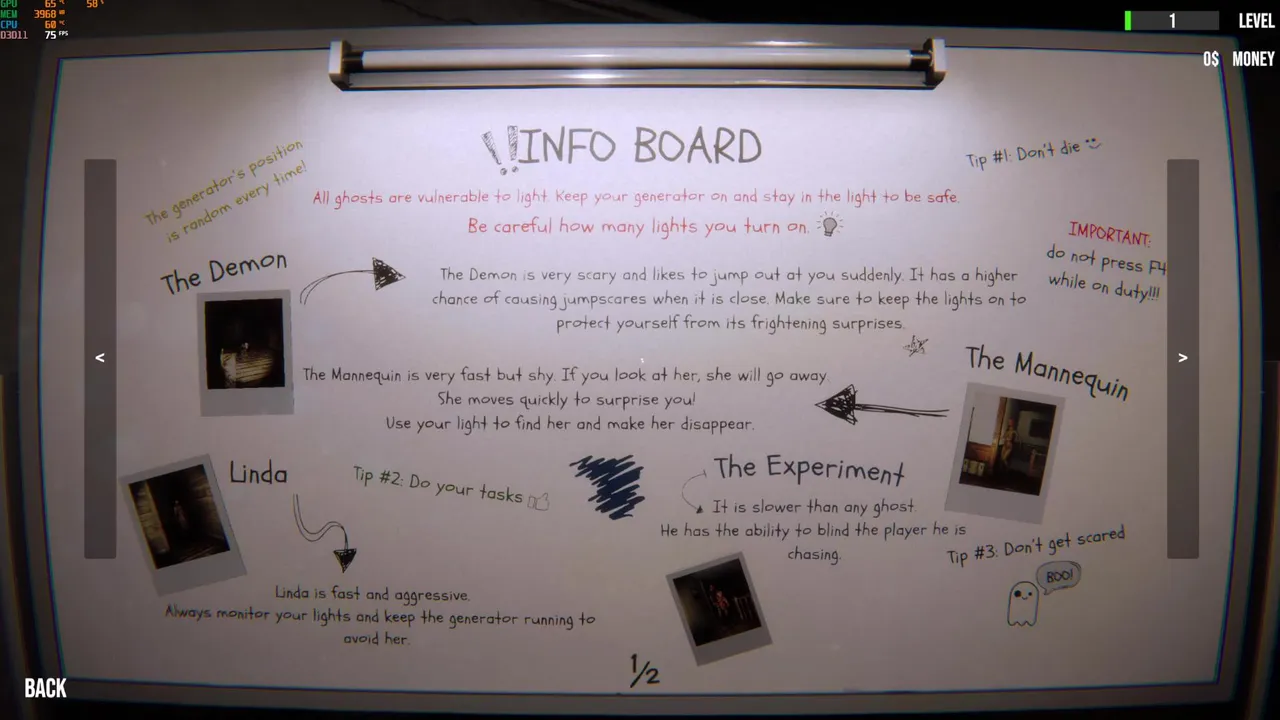 GPU 65 °C 58 %
MEM 3968 MB
CPU 60 °C
D3D11 75 FPS
1 LEVEL
0$ MONEY
!!INFO BOARD
The generator's position
is random every time!
Tip #1: Don't die
All ghosts are vulnerable to light. Keep your generator on and stay in the light to be safe.
Be careful how many lights you turn on.
IMPORTANT:
do not press F4
while on duty!!!
The Demon
The Demon is very scary and likes to jump out at you suddenly. It has a higher
chance of causing jumpscares when it is close. Make sure to keep the lights on to
protect yourself from its frightening surprises.
<
>
The Mannequin
The Mannequin is very fast but shy. If you look at her, she will go away.
She moves quickly to surprise you!
Use your light to find her and make her disappear.
Linda
Tip #2: Do your tasks
The Experiment
It is slower than any ghost.
He has the ability to blind the player he is
chasing.
Tip #3: Don't get scared
BOO!
Linda is fast and aggressive.
Always monitor your lights and keep the generator running to
avoid her.
1/2
BACK